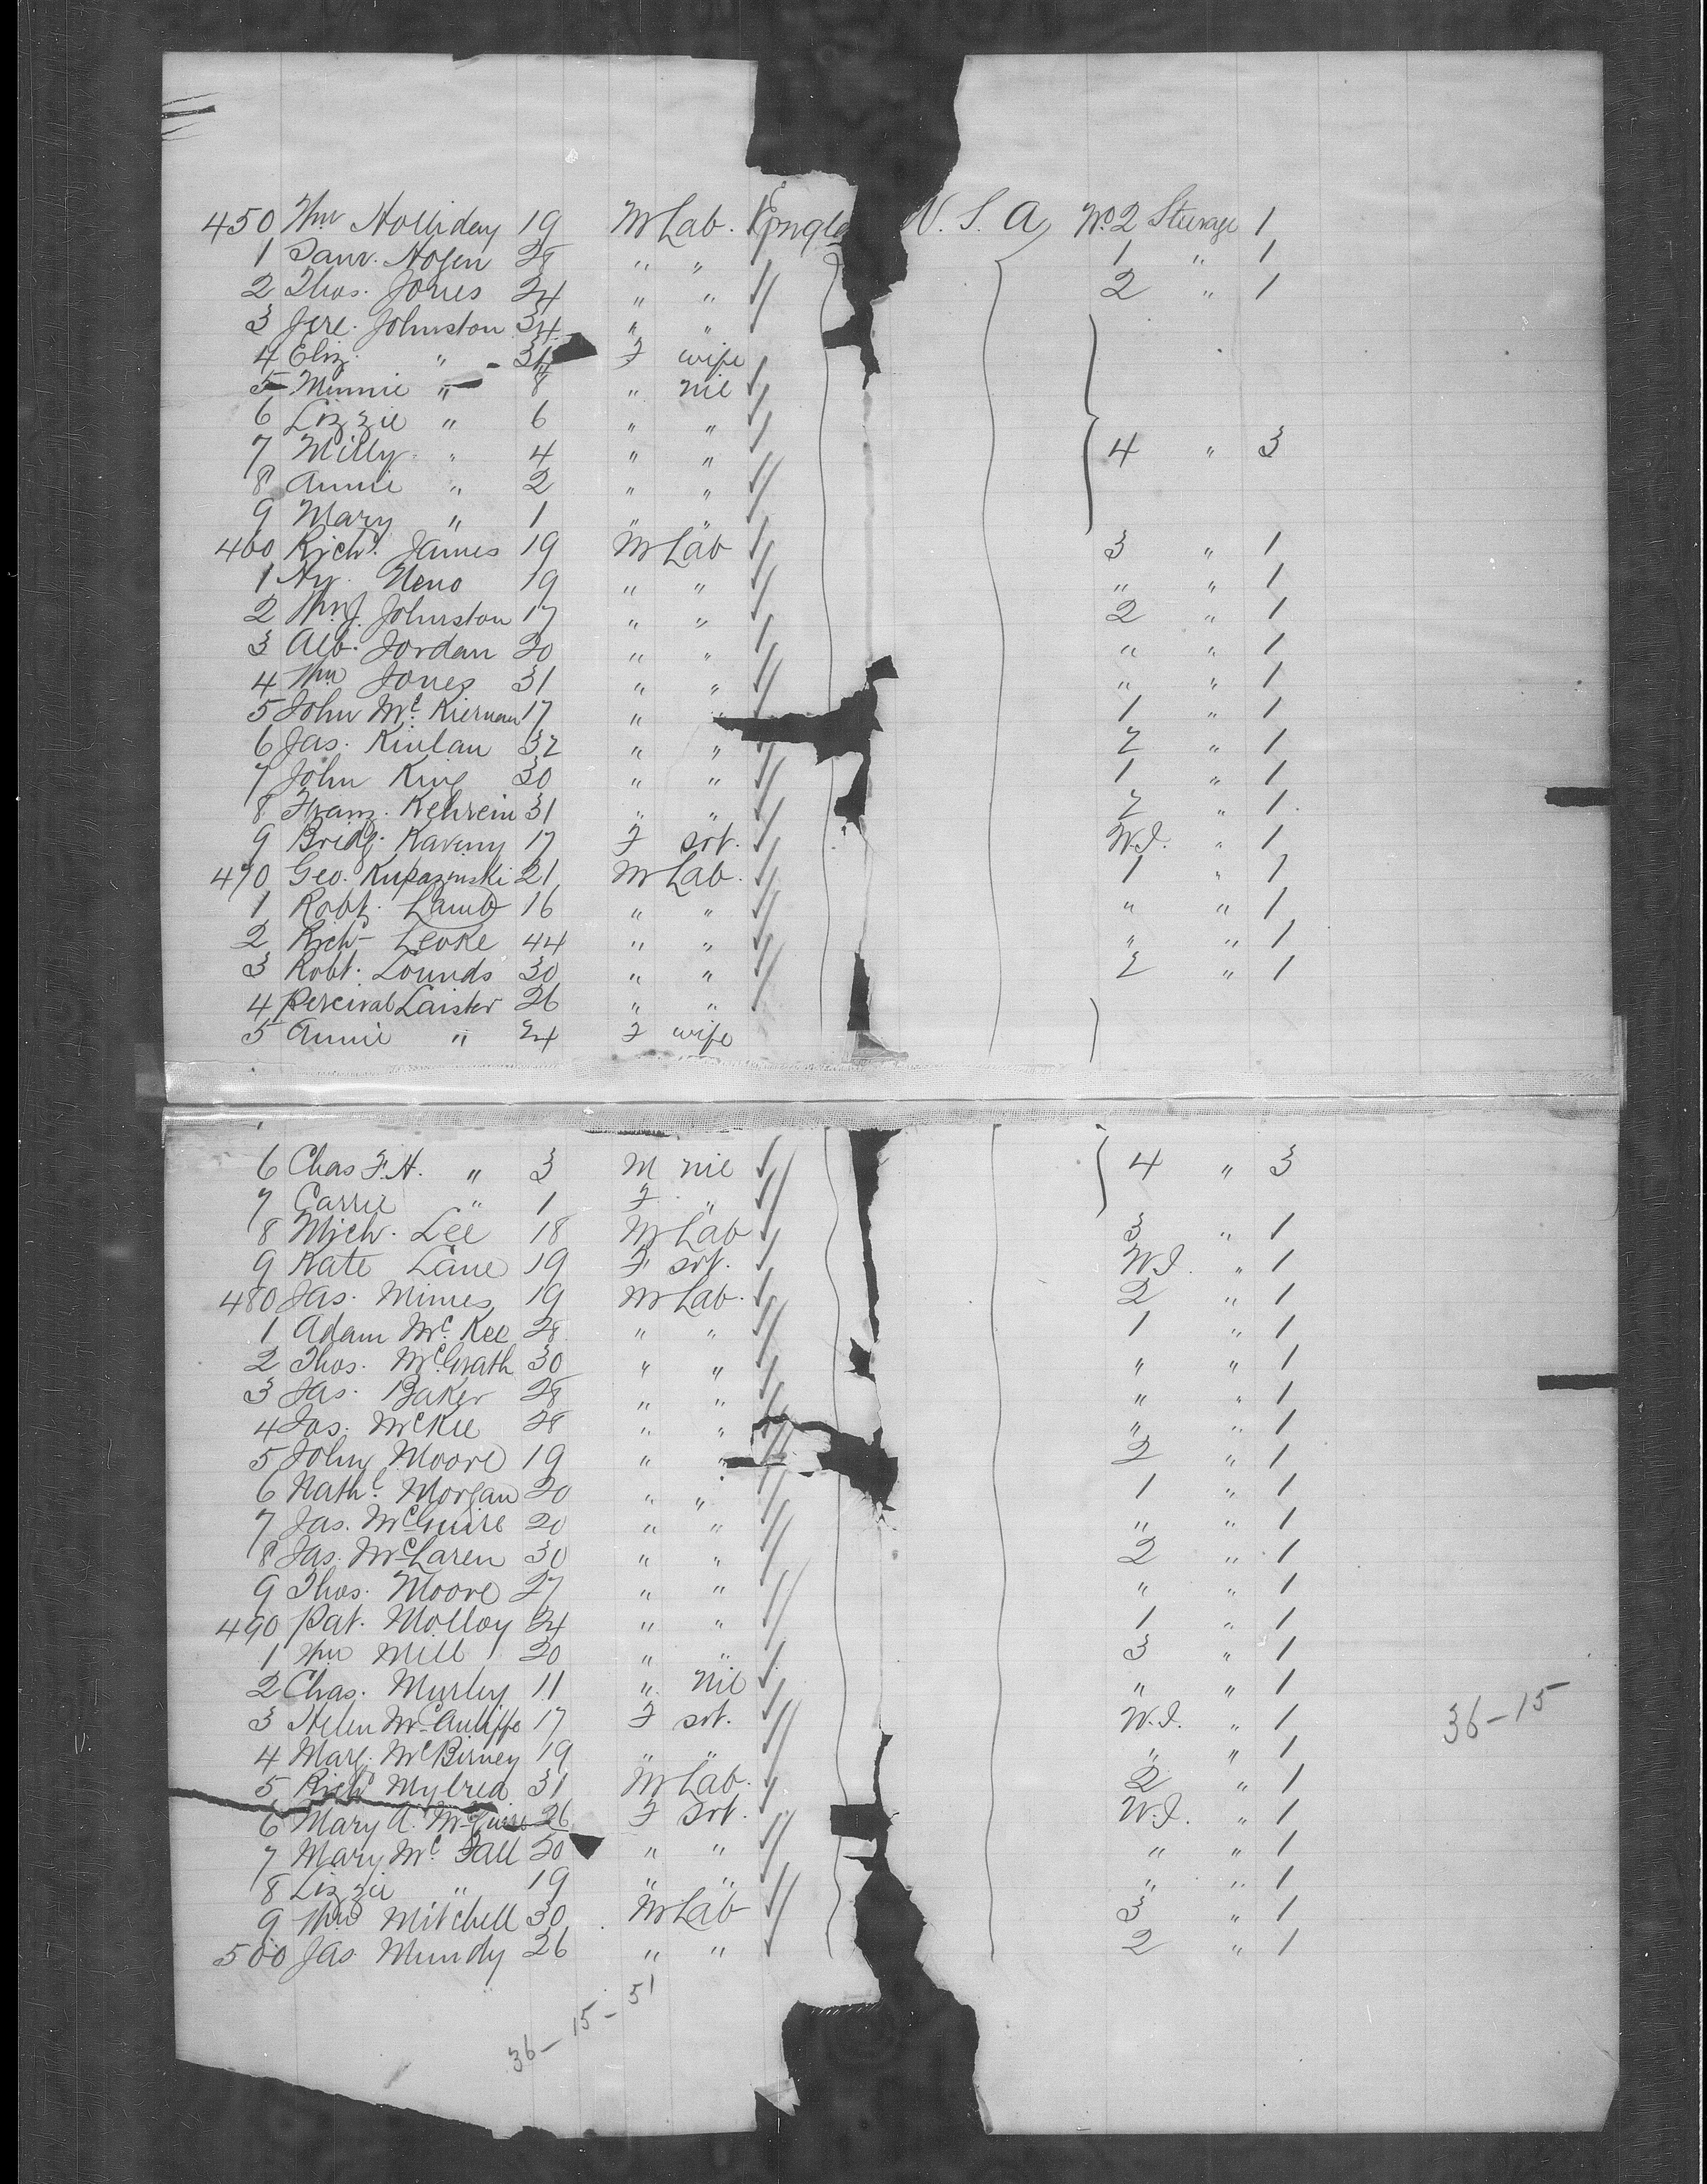 450 Wm Holliday 19 M Lab. Engla U. S. A, No. 2 Steerage 1
1 Saml. Hogen 28 " " 1 " 1
2 Thos. Jones 24 " " 2 " 1
3 Jere. Johnston 34 " "
4 Eliz. " 34 F wife
5 Minnie " 8 " nil
6 Lizzie " 6 " "
7 Milly " 4 " " 4 " 3
8 Annie " 2 " "
9 Mary " 1 " "
460 Richd. James 19 M Lab 3 " 1
1 Hy. 19 " " " " 1
2 Wm J. Johnston 17 " " 2 " 1
3 Alb. Jordan 20 " " " " 1
4 Wm Jones 31 " " " " 1
5 John Mc. Kiernan 17 " " 1 " 1
6 Jas. Kinlan 32 " " 2 " 1
7 John King 30 " " 1 " 1
8 Franz. Kehrein 31 " " 2 " 1
9 Bridg. Kaveny 17 F svt. W.I. " 1
470 Geo. 21 M Lab. 1 " 1
1 Robt. Lamb 16 " " " " 1
2 Richd Leoke 44 " " " " 1
3 Robt. Lounds 30 " " 2 " 1
4 Percival Laister 26 " "
5 Annie " 24 F wife
6 Chas F.H. " 3 M nil 4 " 3
7 Carrie " 1 F "
8 Mich. Lee 18 M Lab 3 " 1
9 Kate Lane 19 F svt. W.I. " 1
480 Jas. Mimes 19 M Lab. 2 " 1
1 Adam Mc. Kee 28 " " 1 " 1
2 Thos. McGrath 30 " " " " 1
3 Jas. Baker 28 " " " " 1
4 Jas. McKee 28 " " " " 1
5 John Moore 19 " " 2 " 1
6 Nathl. Morgan 20 " " 1 " 1
7 Jas. McGuire 20 " " " " 1
8 Jas. McLaren 30 " " 2 " 1
9 Thos. Moore 27 " " " " 1
490 Pat. Molloy 24 " " 1 " 1
1 Wm Mill 20 " " 3 " 1
2 Chas. Murley 11 " nil " " 1
3 Helen McAuliffe 17 F svt. W.I. " 1 36-15
4 Marg. McBirney 19 " " " " 1
5 Richd Mylrea 31 M Lab. 2 " 1
6 Mary A. McGuire 26 F svt. W.I. " 1
7 Mary Mc Fall 20 " " " " 1
8 Lizzie " 19 " " " " 1
9 Wm Mitchell 30 M Lab 3 " 1
500 Jas Mundy 26 " " 2 " 1
36-15-51